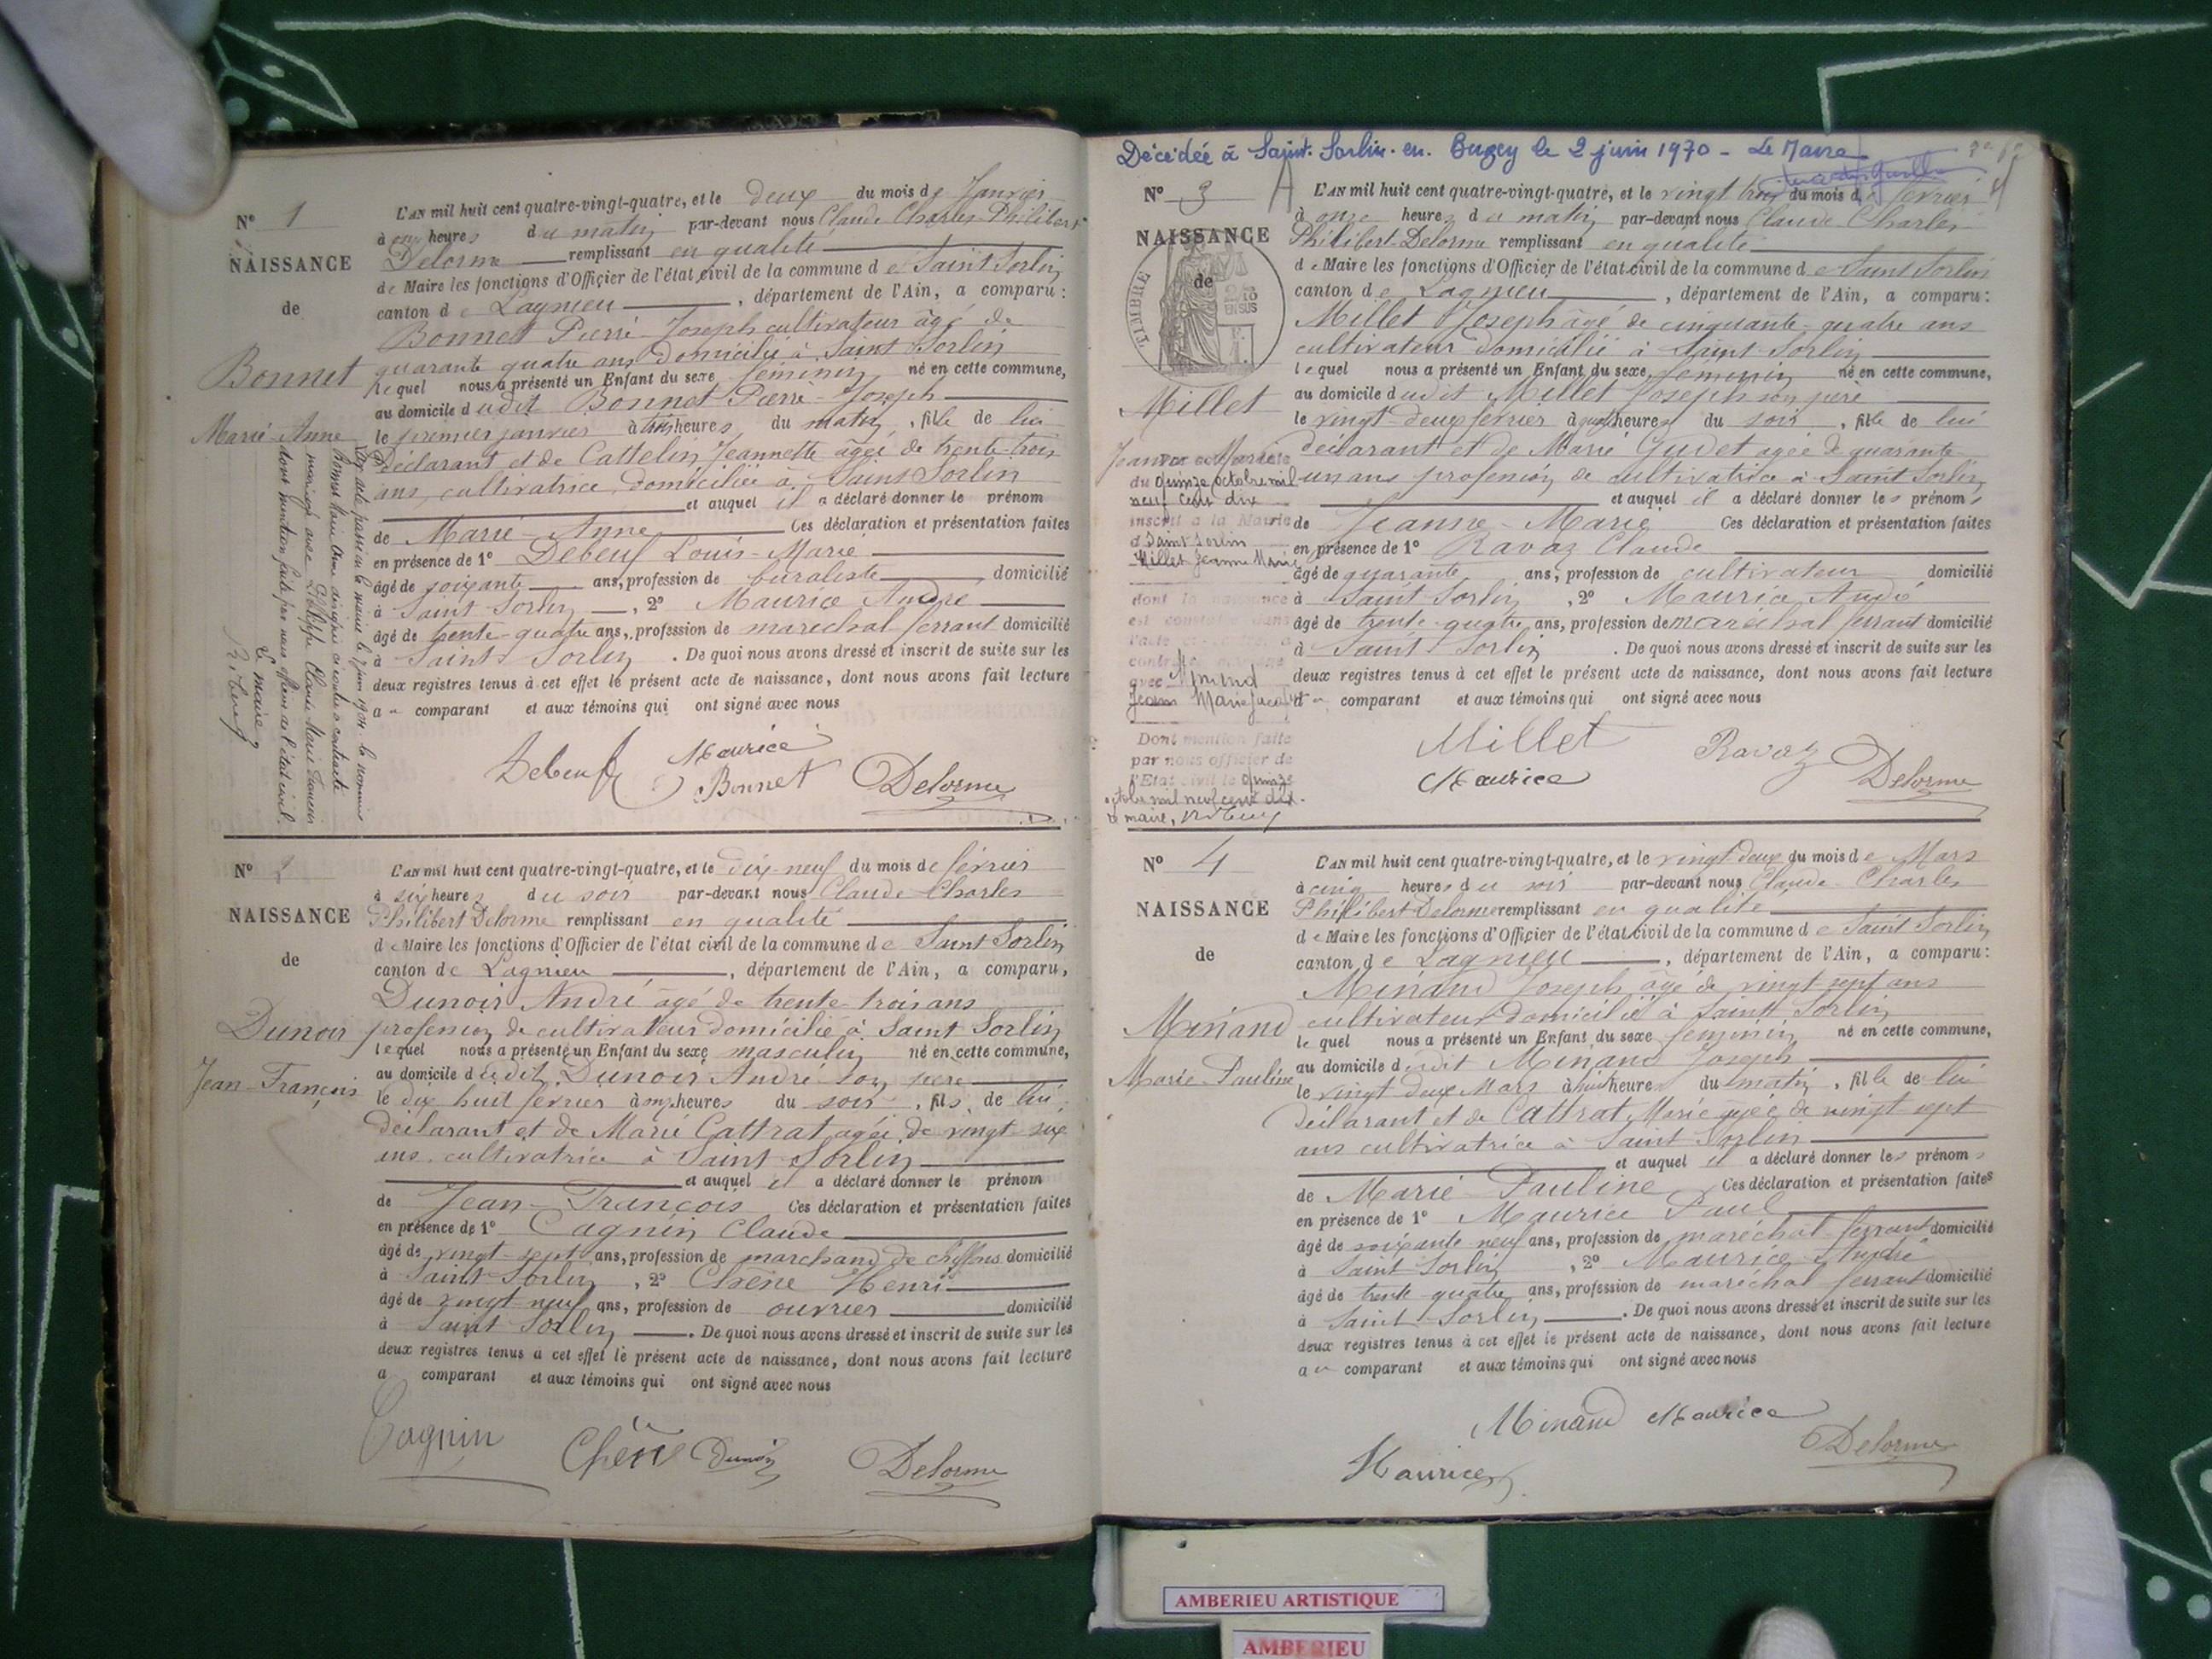 N° 1
NAISSANCE
de
Bonnet
Marie-Anne
L'AN mil huit cent quatre-vingt-quatre, et le deux du mois de Janvier
à onze heures du matin par-devant nous Claude Charles Philibert
Delorme remplissant en qualité
de Maire les fonctions d'Officier de l'état civil de la commune de Saint Sorlin
canton de Lagnieu, département de l'Ain, a comparu:
Bonnet Pierre-Joseph cultivateur âgé de
quarante quatre ans domicilié à Saint Sorlin
lequel nous a présenté un Enfant du sexe féminin né en cette commune,
au domicile dudit Bonnet Pierre-Joseph
le premier janvier à heures du matin, fille de lui
Déclarant et de Cattelin Jeannette âgée de trente-trois
ans, cultivatrice, domiciliée à Saint Sorlin
et auquel il a déclaré donner le prénom
de Marie-Anne Ces déclaration et présentation faites
en présence de 1° Debeuf Louis-Marie
âgé de soixante ans, profession de buraliste domicilié
à Saint Sorlin, 2° Maurice André
âgé de trente-quatre ans, profession de maréchal ferrant domicilié
à Saint Sorlin. De quoi nous avons dressé et inscrit de suite sur les
deux registres tenus à cet effet le présent acte de naissance, dont nous avons fait lecture
au comparant et aux témoins qui ont signé avec nous
Debeuf Maurice
Bonnet Delorme
Bonnet Marie Anne désignée ci-contre a contracté
mariage avec Claude Marie François
dont mention faite par nous officier de l'état civil.
Le maire
N° 2
NAISSANCE
de
Dunoir
Jean-François
L'AN mil huit cent quatre-vingt-quatre, et le dix-neuf du mois de février
à six heures du soir par-devant nous Claude Charles
Philibert Delorme remplissant en qualité
de Maire les fonctions d'Officier de l'état civil de la commune de Saint Sorlin
canton de Lagnieu, département de l'Ain, a comparu,
Dunoir André âgé de trente-trois ans
profession de cultivateur domicilié à Saint Sorlin
lequel nous a présenté un Enfant du sexe masculin né en cette commune,
au domicile dudit Dunoir André son père
le dix huit février à onze heures du soir, fils de lui,
déclarant et de Marie Cattrat âgée de vingt-six
ans cultivatrice à Saint Sorlin
et auquel il a déclaré donner le prénom
de Jean-François Ces déclaration et présentation faites
en présence de 1° Cagnin Claude
âgé de vingt-sept ans, profession de marchand de chiffons domicilié
à Saint Sorlin, 2° Chêne Henri
âgé de vingt neuf ans, profession de ouvrier domicilié
à Saint Sorlin. De quoi nous avons dressé et inscrit de suite sur les
deux registres tenus à cet effet le présent acte de naissance, dont nous avons fait lecture
a comparant et aux témoins qui ont signé avec nous
Cagnin Chêne Dunoir Delorme
Décédée à Saint-Sorlin-en-Bugey le 2 juin 1970 - Le Maire
N° 3
NAISSANCE
de
TIMBRE
Millet
Jeanne-Marie
L'AN mil huit cent quatre-vingt-quatre, et le vingt trois du mois de février
à onze heures du matin par-devant nous Claude Charles
Philibert Delorme remplissant en qualité
de Maire les fonctions d'Officier de l'état civil de la commune de Saint Sorlin
canton de Lagnieu, département de l'Ain, a comparu:
Millet Joseph âgé de cinquante-quatre ans
cultivateur domicilié à Saint-Sorlin
lequel nous a présenté un Enfant du sexe féminin né en cette commune,
au domicile dudit Millet Joseph son père
le vingt-deux février à heures du soir, fille de lui
déclarant et de Marie Gudet agée de quarante-
un ans profession de cultivatrice à Saint Sorlin
et auquel il a déclaré donner les prénoms
de Jeanne-Marie Ces déclaration et présentation faites
en présence de 1° Ravaz Claude
âgé de quarante ans, profession de cultivateur domicilié
à Saint Sorlin, 2° Maurice André
âgé de trente-quatre ans, profession de maréchal ferrant domicilié
à Saint Sorlin. De quoi nous avons dressé et inscrit de suite sur les
deux registres tenus à cet effet le présent acte de naissance, dont nous avons fait lecture
au comparant et aux témoins qui ont signé avec nous
Millet Ravaz
Maurice Delorme
du quinze octobre mil
neuf cent dix
inscrit à la Mairie
d Saint Sorlin
Millet Jeanne Marie
dont la naissance
est constatée dans
l'acte ci-contre, a
contracté mariage
avec Minand
Jean Marie
Dont mention faite
par nous officier de
l'Etat civil le quinze
octobre mil neuf cent dix.
Le maire,
N° 4
NAISSANCE
de
Minand
Marie Pauline
L'AN mil huit cent quatre-vingt-quatre, et le vingt-deux du mois de Mars
à cinq heures du soir par-devant nous Claude Charles
Philibert Delorme remplissant en qualité
de Maire les fonctions d'Officier de l'état civil de la commune de Saint Sorlin
canton de Lagnieu, département de l'Ain, a comparu:
Minand Joseph âgé de vingt sept ans
cultivateur domicilié à Saint Sorlin
lequel nous a présenté un Enfant du sexe féminin né en cette commune,
au domicile dudit Minand Joseph
le vingt deux Mars à huit heures du matin, fille de lui
déclarant et de Cattrat Marie agée de vingt-sept
ans cultivatrice à Saint Sorlin
et auquel il a déclaré donner les prénoms
de Marie Pauline Ces déclaration et présentation faites
en présence de 1° Maurice Paul
âgé de soixante neuf ans, profession de maréchal ferrant domicilié
à Saint Sorlin, 2° Maurice André
âgé de trente quatre ans, profession de maréchal ferrant domicilié
à Saint Sorlin. De quoi nous avons dressé et inscrit de suite sur les
deux registres tenus à cet effet le présent acte de naissance, dont nous avons fait lecture
au comparant et aux témoins qui ont signé avec nous
Minand Maurice
Maurice Delorme
AMBERIEU ARTISTIQUE
AMBERIEU